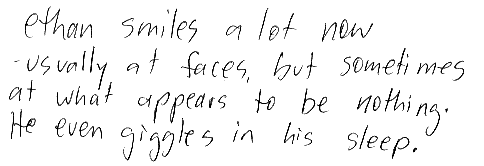 ethan smiles a lot now
-usually at faces, but sometimes
at what appears to be nothing.
He even giggles in his sleep.